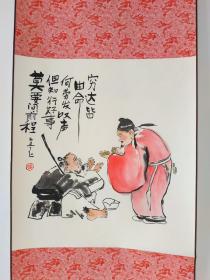 穷达皆
由命
何劳发叹声
但知行好事
莫要问前程